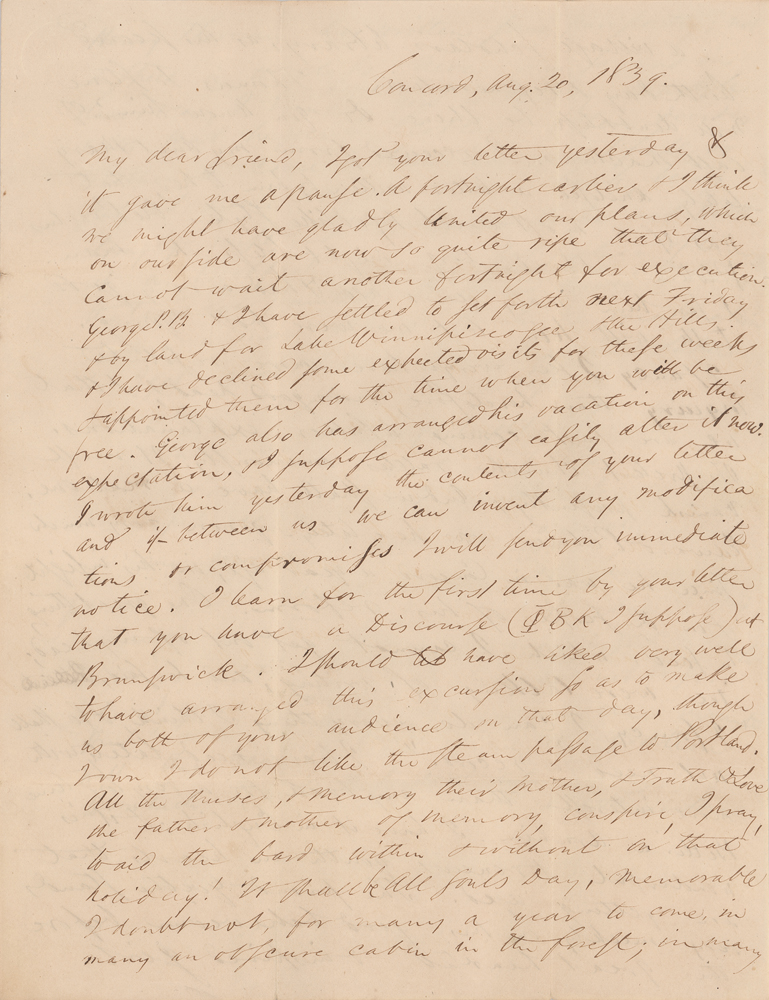 Concord, Aug. 20, 1839.
My dear friend, I got your letter yesterday &
it gave me a pause. A fortnight earlier & I think
we might have gladly united our plans, which
on our side are now so quite ripe that they
cannot wait another fortnight for execution.
George P. B. & I have settled to set forth next Friday
& by land for Lake Winnipiseogee & the Hills.
& I have declined some expected visits for these weeks
& appointed them for the time when you will be
free. George also has arranged his vacation on this
expectation, & I suppose cannot easily alter it now.
I wrote him yesterday the contents of your letter
and if between us we can invent any modifica
tions or compromises I will send you immediate
notice. I learn for the first time by your letter
that you have a Discourse (ΦBK I suppose) at
Brunswick. I should have liked very well
to have arranged this excursion so as to make
us both of your audience on that day, though
I own I do not like the steam passage to Portland.
All the Muses, & Memory their Mother, & Truth & Love
the father & mother of memory, conspire, I pray,
to aid the bard within & without on that
holiday! It shall be All Souls Day, memorable
I doubt not, for many a year to come, in
many an obscure cabin in the forest; in many